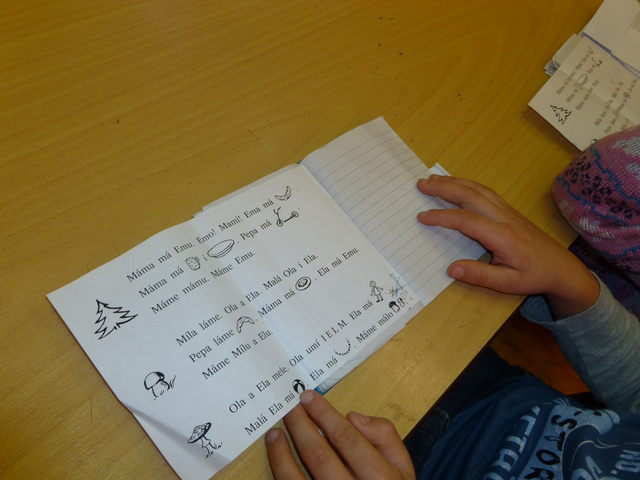 Máma má Emu. Emo! Mami! Ema má
Máma má i . Pepa má
Máme mámu. Máme Emu.
Míla láme. Ola a Ela. Malá Ola i Ela.
Pepa láme . Máma má . Ela má Emu.
Máme Mílu a Elu.
Ola a Ela mele. Ola umí I E L M. Ela má
Malá Ela má . Ela má . Máme málo